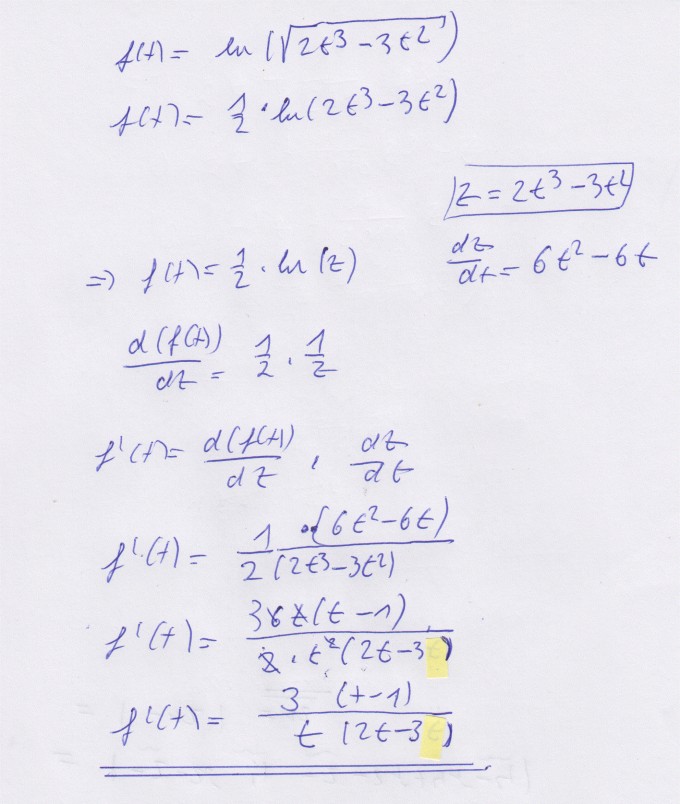 f(t) = ln(√(2t³ - 3t²))
f(t) = 1/2 · ln(2t³ - 3t²)
z = 2t³ - 3t²
dz/dt = 6t² - 6t
⇒ f(t) = 1/2 · ln(z)
d(f(t))/dz = 1/2 · 1/z
f'(t) = d(f(t))/dz · dz/dt
f'(t) = 1/2 · (6t² - 6t)/(2t³ - 3t²)
f'(t) = 3 6 t(t - 1)/(2 · t²(2t - 3))
f'(t) = 3 (t - 1)/(t (2t - 3))